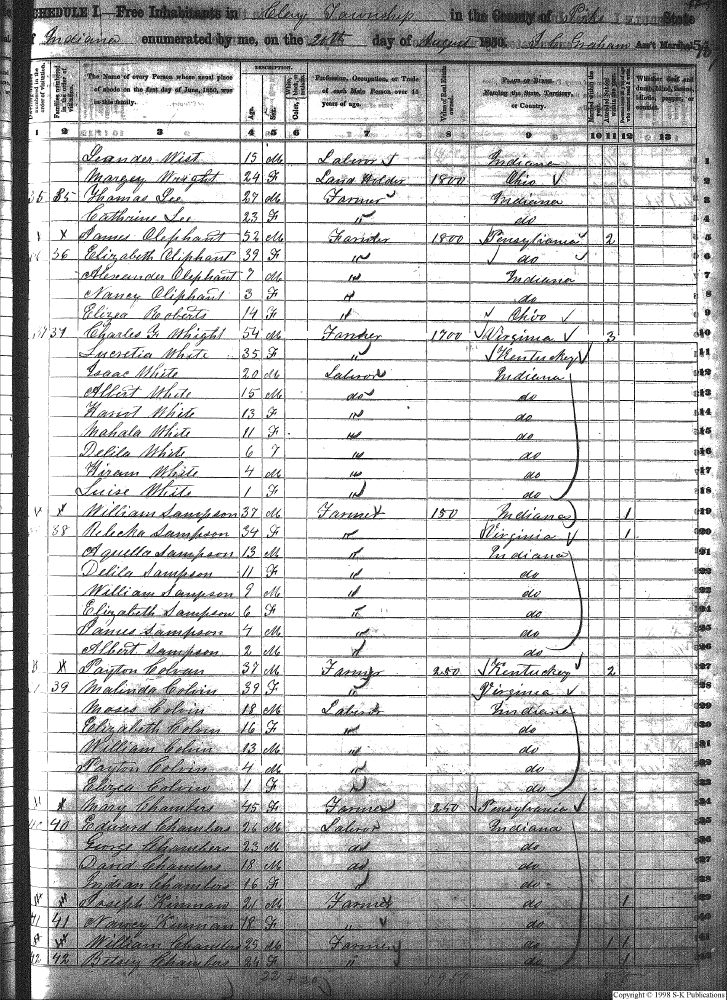 SCHEDULE I.—Free Inhabitants in Clay Township in the County of Pike State
of Indiana enumerated by me, on the 20th day of August 1850. John Graham Ass't Marshal
DESCRIPTION.
The Name of every Person whose usual place of abode on the first day of June, 1850, was in this family.
Age. Sex.
Profession, Occupation, or Trade of each Male Person over 15 years of age.
Value of Real Estate owned.
PLACE OF BIRTH. Naming the State, Territory, or Country.
1 2 3 4 5 6 7 8 9 10 11 12 13
Leander West 15 M Labor Indiana 1
Margey Wright 24 F Land Holder 1800 Ohio 2
35 Thomas Lee 27 M Farmer Indiana 3
Cathrine Lee 23 F " do 4
James Olephant 52 M Farmer 1800 Pensylvania 2 5
36 Elizabeth Oliphant 39 F " do 6
Alexander Olephant 7 M " Indiana 7
Nancy Oliphant 3 F " do 8
Elizea Roberts 14 F " Ohio 9
37 Charles F Whight 54 M Farmer 1700 Virginia 3 10
Lucretia White 35 F " Kentuckey 11
Isaac White 20 M Labror Indiana 12
Albert White 15 M do do 13
Hariot White 13 F " do 14
Mahala White 11 F " do 15
Delila White 6 7 " do 16
Hiram White 4 M " do 17
Luise White 1 F " do 18
William Sampson 37 M Farmer 150 Indiana 1 19
38 Rebecka Sampson 34 F " Virginia 1 20
Aquilla Sampson 13 M " Indiana 21
Delila Sampson 11 F " do 22
William Sampson 9 M " do 23
Elizabeth Sampson 6 F " do 24
James Sampson 4 M " do 25
Albert Sampson 2 M " do 26
Payton Colvan 37 M Farmer 250 Kentuckey 2 27
39 Malinda Colvin 39 F " Virginia 28
Moses Colvin 18 M Labror Indiana 29
Elizabeth Colvin 16 F " do 30
William Colvin 13 M " do 31
Payton Colvin 4 M " do 32
Elizea Colvin 1 F " do 33
Mary Chambers 45 F Farmer 250 Pensylvania 34
40 40 Edward Chambers 26 M Labror Indiana 35
George Chambers 23 M do do 36
David Chambers 18 M do do 37
Indian Chambers 16 F " do 38
Joseph Kinman 21 M Farmer do 1 39
41 41 Nancy Kinman 18 F " do 40
William Chambers 25 M Farmer do 1 1 41
42 42 Betsey Chambers 24 F " do 1 42
Copyright © 1998 S-K Publications